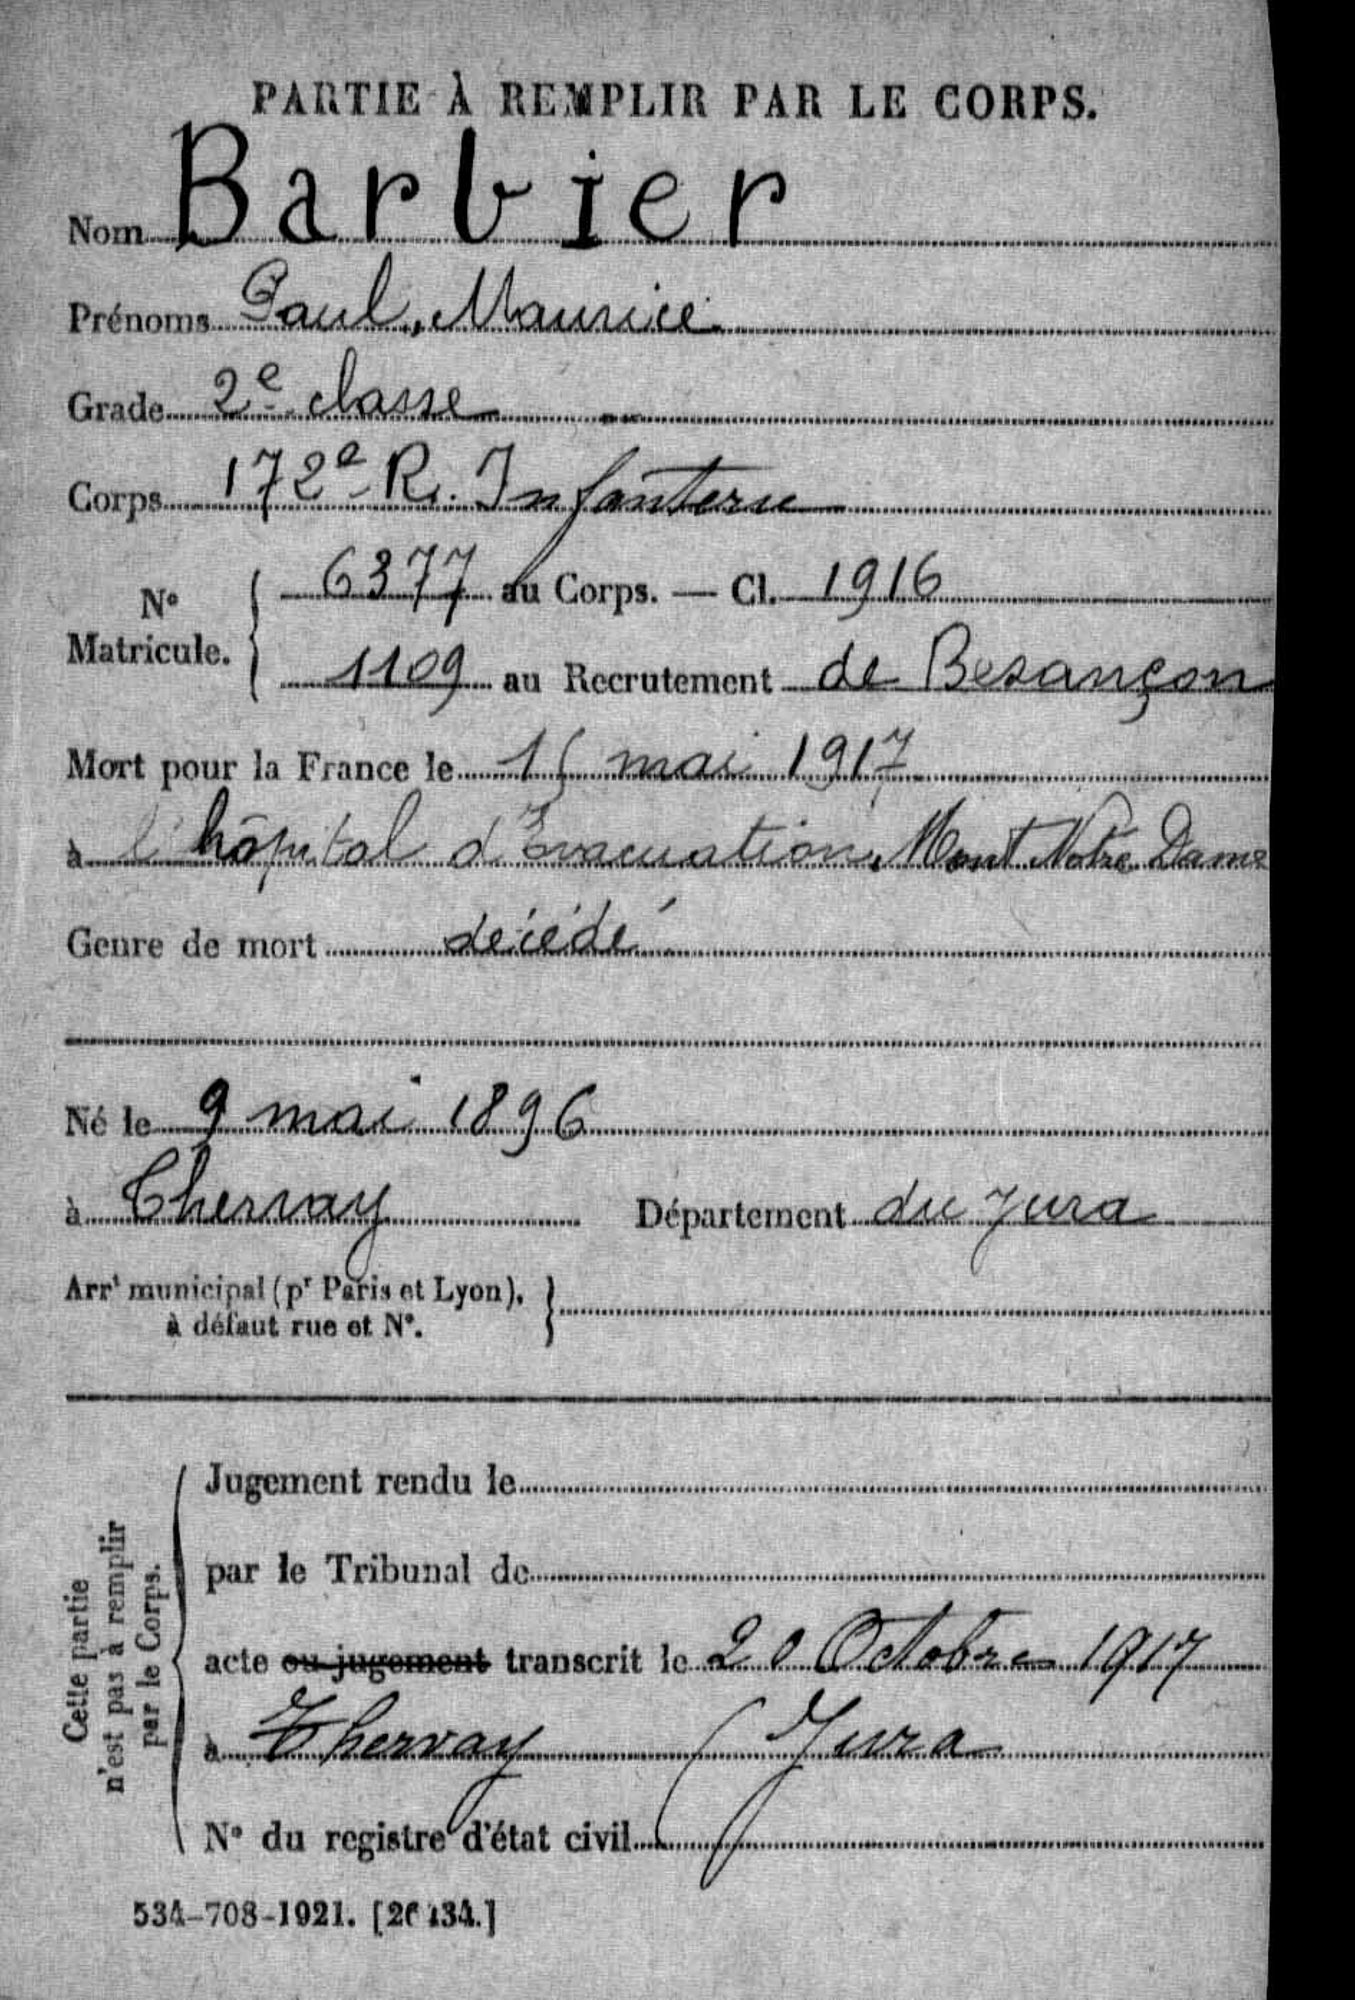 PARTIE À REMPLIR PAR LE CORPS.
Nom Barbier
Prénoms Paul, Maurice
Grade 2e classe
Corps 172e R. Infanterie
No Matricule. { 6377 au Corps. — Cl. 1916
1109 au Recrutement de Besançon
Mort pour la France le 15 mai 1917
à l'hôpital d'Evacuation, Mont Notre Dame
Genre de mort décédé
Né le 9 mai 1896
à Thervay Département du Jura
Arrt municipal (pr Paris et Lyon), }
à défaut rue et No.
Cette partie n'est pas à remplir par le Corps.
Jugement rendu le
par le Tribunal de
acte ou jugement transcrit le 20 Octobre 1917
à Thervay (Jura
No du registre d'état civil
534-708-1921. [26434.]